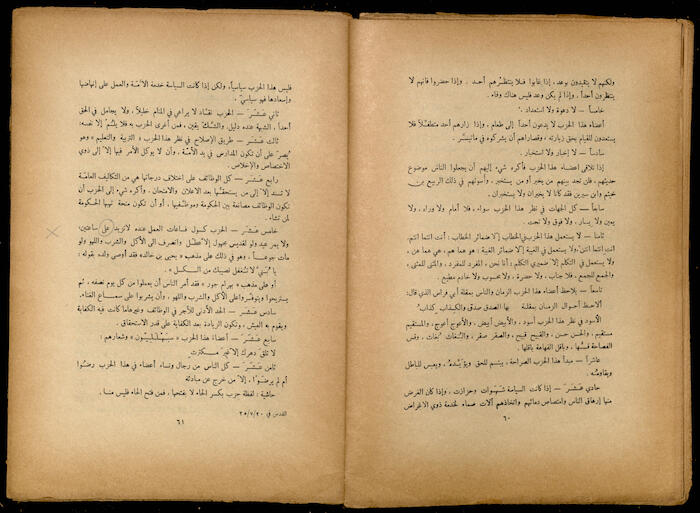 ولكنهم لا يتقيدون بوعد ، إذا غابوا فلا ينتظرهم أحد . وإذا حضروا فانهم لا
ينتظرون أحداً ، وإذا لم يكن وعد فليس هناك وفاء .
خامساً — لا دعوة ولا استعداد .
أعضاء هذا الحزب لا يدعون أحداً إلى طعام ، وإذا زارهم أحد متطفلاً فلا
يستعدون للقيام بحق زيارته ، وقصاراهم أن يشركوه في ماتيسر .
سادساً — لا إخبار ولا استخبار .
إذا تلاقى اعضاء هذا الحزب فأكره شيء إليهم أن يجعلوا الناس موضوع
حديثهم ، فلن تجد بينهم من يخبر أو من يستخبر ، وأسوتهم في ذلك الربيع بن
خيثم وابن سيرين فقد كانا لا يخبران ولا يستخبران .
سابعاً — كل الجهات في نظر هذا الحزب سواء ، فلا أمام ولا وراء ، ولا
يمين ولا يسار ، ولا فوق ولا تحت .
ثامناً — لا يستعمل هذا الحزب في الخطاب إلا ضمائر الخطاب : أنت أنتما أنتم ،
أنت أنتما أنتن ، ولا يستعمل في الغيبة إلا ضمائر الغيبة : هو هما هم ، هي هما هن ،
ولا يستعمل في التكلم إلا ضميري التكلم : أنا نحن ، المفرد للمفرد ، والمثنى للمثنى ،
والجمع للجمع . فلا جناب ، ولا حضرة ، ولا محسوب ولا خادم مطيع .
تاسعاً — يلاحظ أعضاء هذا الحزب الزمان والناس بمقلة أبي فراس الذي قال :
ألاحظ أحوال الزمان بمقلة بها الصدق صدق والكذاب كذاب
الأسود في نظر هذا الحزب أسود ، والأبيض أبيض ، والأعوج أعوج ، والمستقيم
مستقيم ، والحسن حسن ، والقبيح قبيح ، والصقر صقر ، والبغاث بغاث ، وقس
الفصاحة قسها ، وباقل الفهاهة باقلها .
عاشراً — مبدأ هذا الحزب الصراحة ، يبسم للحق ويؤيده ، ويعبس للباطل
ويقاومه .
حادي عشر — إذا كانت السياسة شهوات وحزازات ، وإذا كان الغرض
منها إرهاق الناس وامتصاص دمائهم واتخاذهم آلات صماء لخدمة ذوي الاغراض
٦٠
فليس هذا الحزب سياسياً ، ولكن إذا كانت السياسة خدمة الأمة والعمل على إنهاضها
وإسعادها فهو سياسي .
ثاني عشر — الحزب نقاد لا يراعي في المنام خليلاً ، ولا يجامل في الحق
أحداً ، الشبهة عنده دليل ، والشك يقين ، فمن أغرى الحزب به فلا يلم إلا نفسه .
ثالث عشر — طريق الإصلاح في نظر هذا الحزب « التربية والتعليم » وهو
يصر على أن تكون المدارس في يد الأمة ، وأن لا يوكل الأمر فيها إلا إلى ذوي
الاختصاص والإخلاص .
رابع عشر — كل الوظائف على اختلاف درجاتها هي من التكاليف العامة
لا تسند إلا إلى من يستحقها بعد الاعلان والامتحان . وأكره شيء إلى الحزب أن
تكون الوظائف مصانعة بين الحكومة وموظفيها ، أو أن تكون منحة تهبها الحكومة
لمن تشاء .
خامس عشر — الحزب كسول فساعات العمل عنده لا تزيد على ساعتين ،
ولا يمر عيد ولو لقديس مجهول إلا عطل وانصرف الى الأكل والشرب واللهو ولو
مات جوعاً ، وهو في ذلك على مذهب « يحيى بن خالد » فقد أوصى ولده بقوله :
يا بني لا تغفل نصيبك من الكسل .
أو على مذهب « بهرام جور » فقد أمر الناس أن يعملوا من كل يوم نصفه ، ثم
يستريحوا ويتوفروا على الأكل والشرب واللهو ، وأن يشربوا على سماع الغناء .
سادس عشر — الحد الأدنى للأجر في الوظائف وغيرها ما كانت فيه الكفاية
ويقوم به العيش ، وتكون الزيادة بعد الكفاية على قدر الاستحقاق .
سابع عشر — أعضاء هذا الحزب « سبهلليون » وشعارهم
لا تلق دهرك إلا غير مكترث
ثامن عشر — كل الناس من رجال ونساء أعضاء في هذا الحزب رضوا
أم لم يرضوا ، إلا من خرج عن مبادئه
حاشية : لفظة حزب بكسر الحاء لا بفتحها ، فمن فتح الحاء فليس منا .
القدس في ٢٠/٧/٢٥
٦١